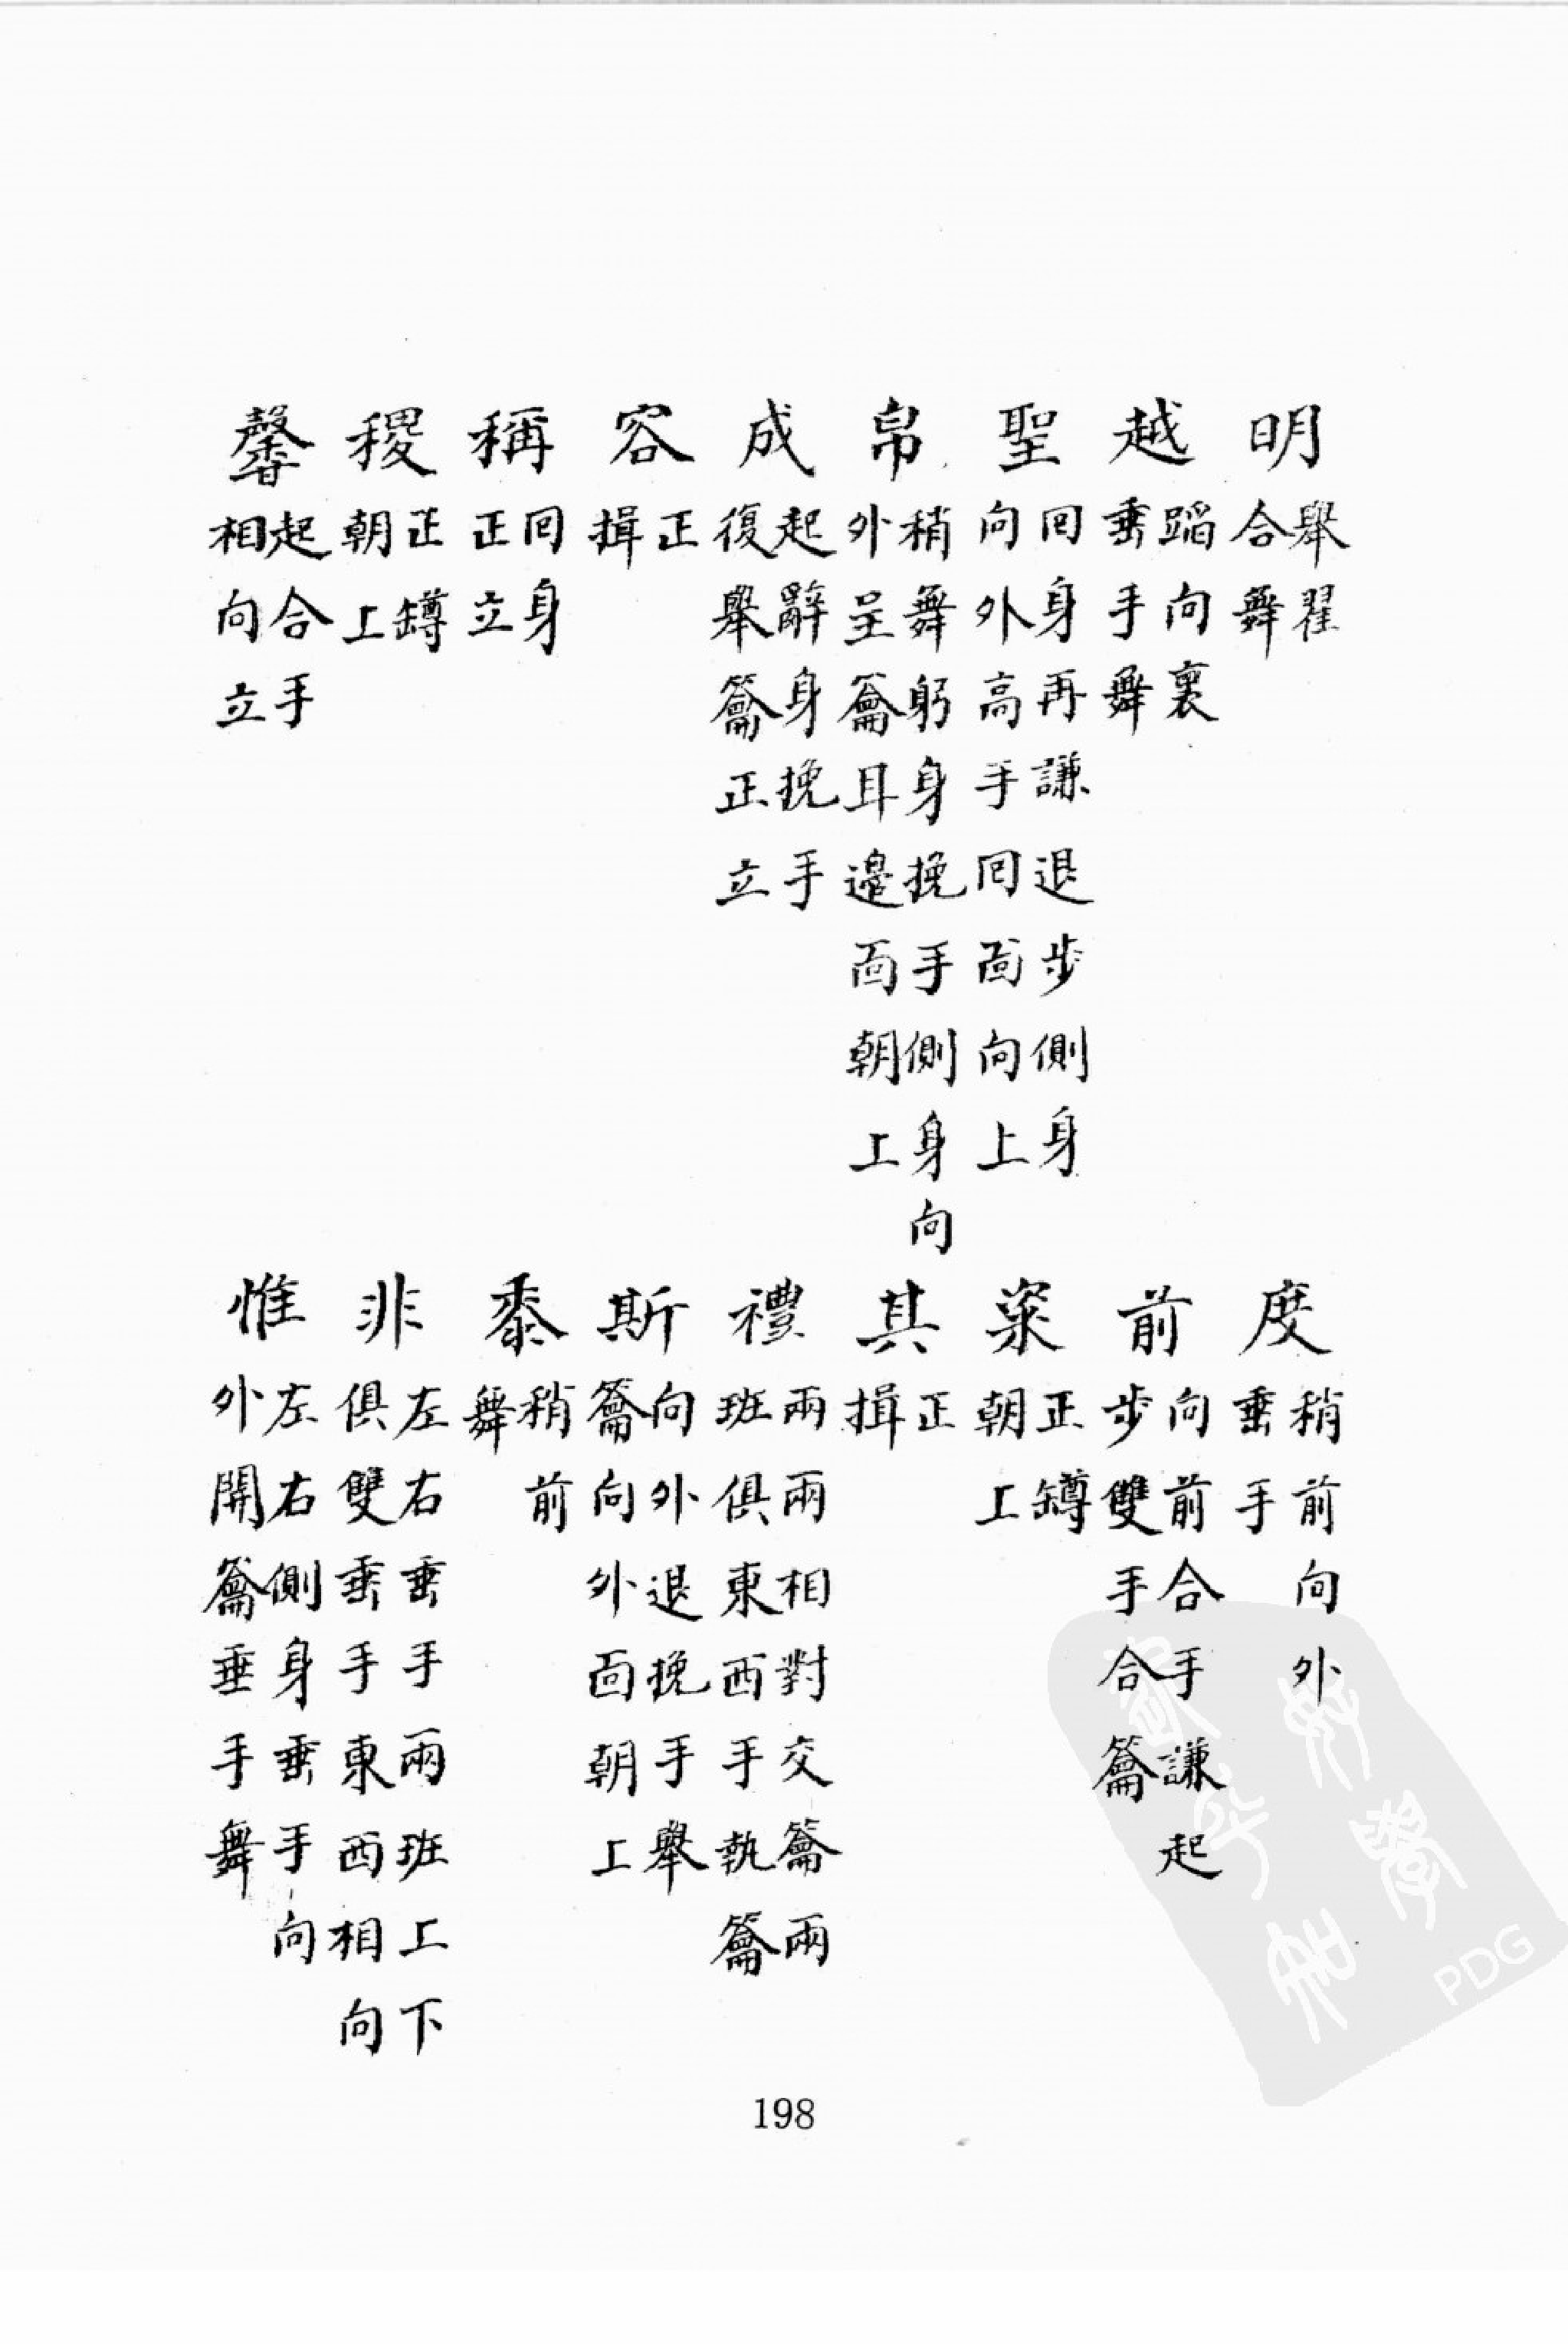 明舉翟合舞度稍前向外垂手
越蹈向裏垂手舞前向前合手謙起步雙手合籥
聖回身再謙退步側身向外高手回面向上粢正罇朝上
帛稍舞躬身挽手側身向外呈籥耳邊面朝上其正揖
成起辭身挽手復舉籥正立禮兩兩相對交籥兩班俱東西手執籥
容正揖斯向外退挽手舉籥向外面朝上
稱回身正立黍稍前舞
稷正罇朝上非左右垂手兩班上下俱雙垂手東西相向
馨起合手相向立惟左右側身垂手向外開籥垂手舞
198
PDG